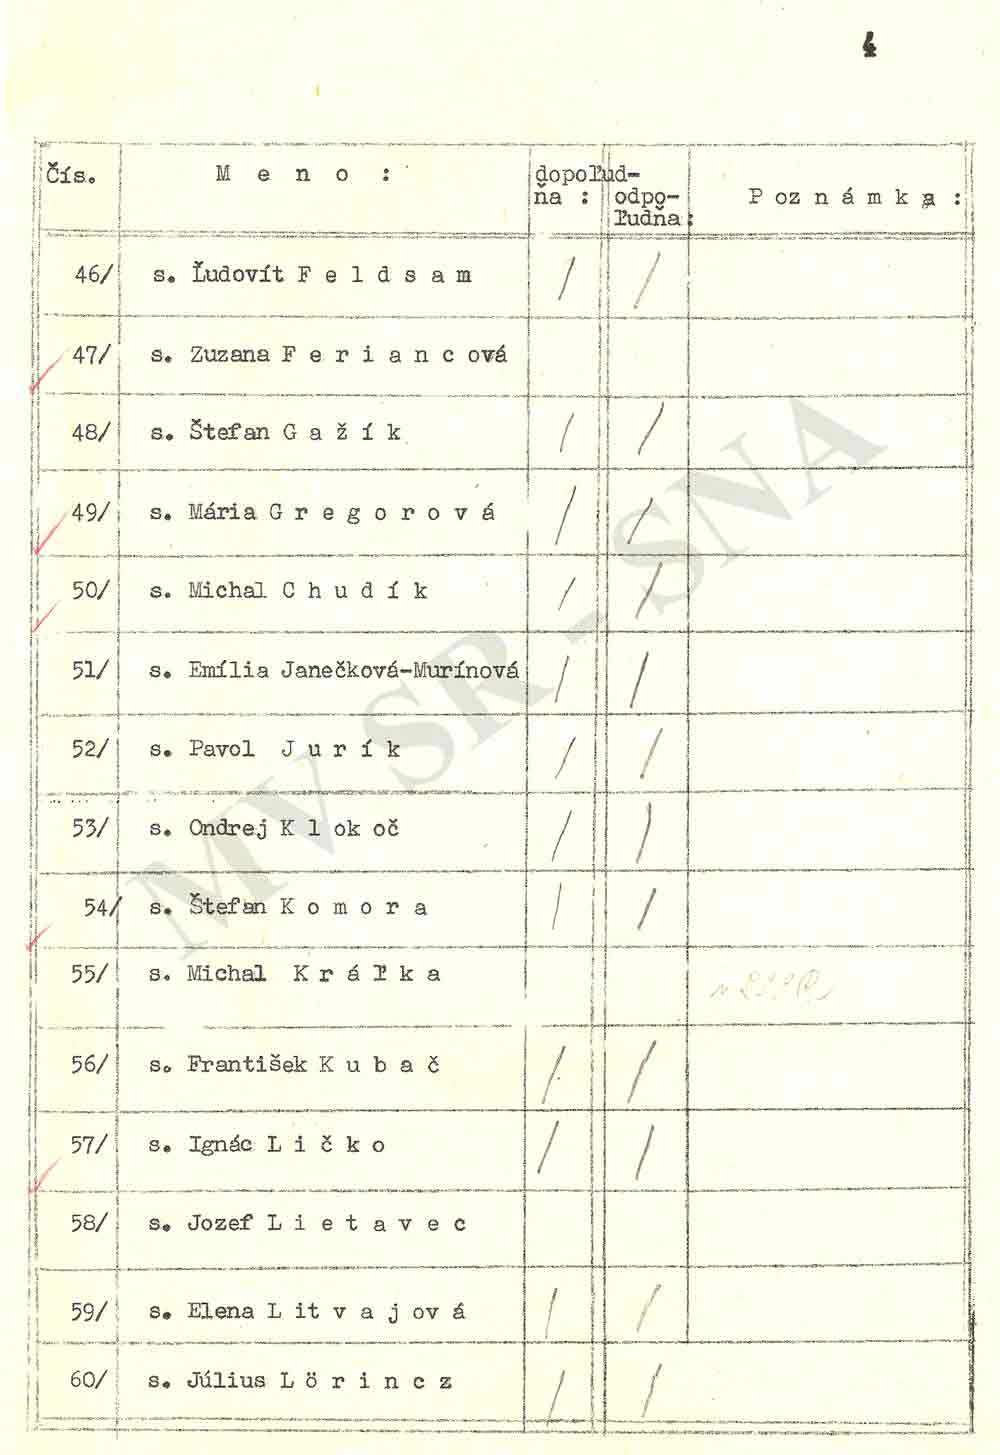 4
Čís.
M e n o :
dopoľud-
ňa :
odpo-
ľudňa:
P oz n á m k a :
46/ s. Ľudovít F e l d s a m / /
47/ s. Zuzana F e r i a n c ová
48/ s. Štefan G a ž í k / /
49/ s. Mária G r e g o r o v á / /
50/ s. Michal C h u d í k / /
51/ s. Emília Janečková-Murínová / /
52/ s. Pavol J u r í k / /
53/ s. Ondrej K l ok oč / /
54/ s. Štefan K o m o r a / /
55/ s. Michal K r á ľ k a
56/ s. František K u b a č / /
57/ s. Ignác L i č k o / /
58/ s. Jozef L i e t a v e c
59/ s. Elena L it v a j ov á / /
60/ s. Július L ö r i n c z / /
MV SR - SNA